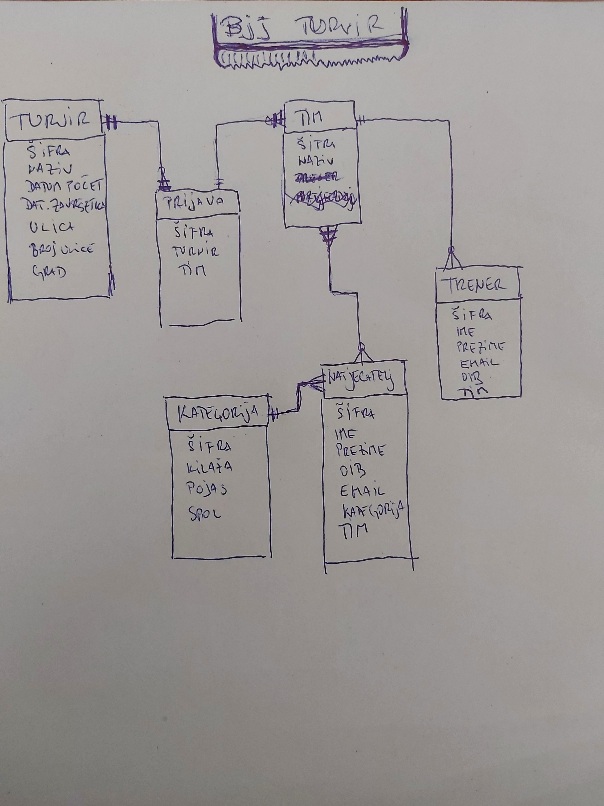 BJJ TURNIR
TURNIR
ŠIFRA
NAZIV
DATUM POČET
DAT. ZAVRŠETKA
ULICA
BROJ ULICE
GRAD
PRIJAVA
ŠIFRA
TURNIR
TIM
TIM
ŠIFRA
NAZIV
TRENER
ŠIFRA
IME
PREZIME
EMAIL
OIB
TIM
KATEGORIJA
ŠIFRA
KILAŽA
POJAS
SPOL
NATJECATELJ
ŠIFRA
IME
PREZIME
OIB
EMAIL
KATEGORIJA
TIM